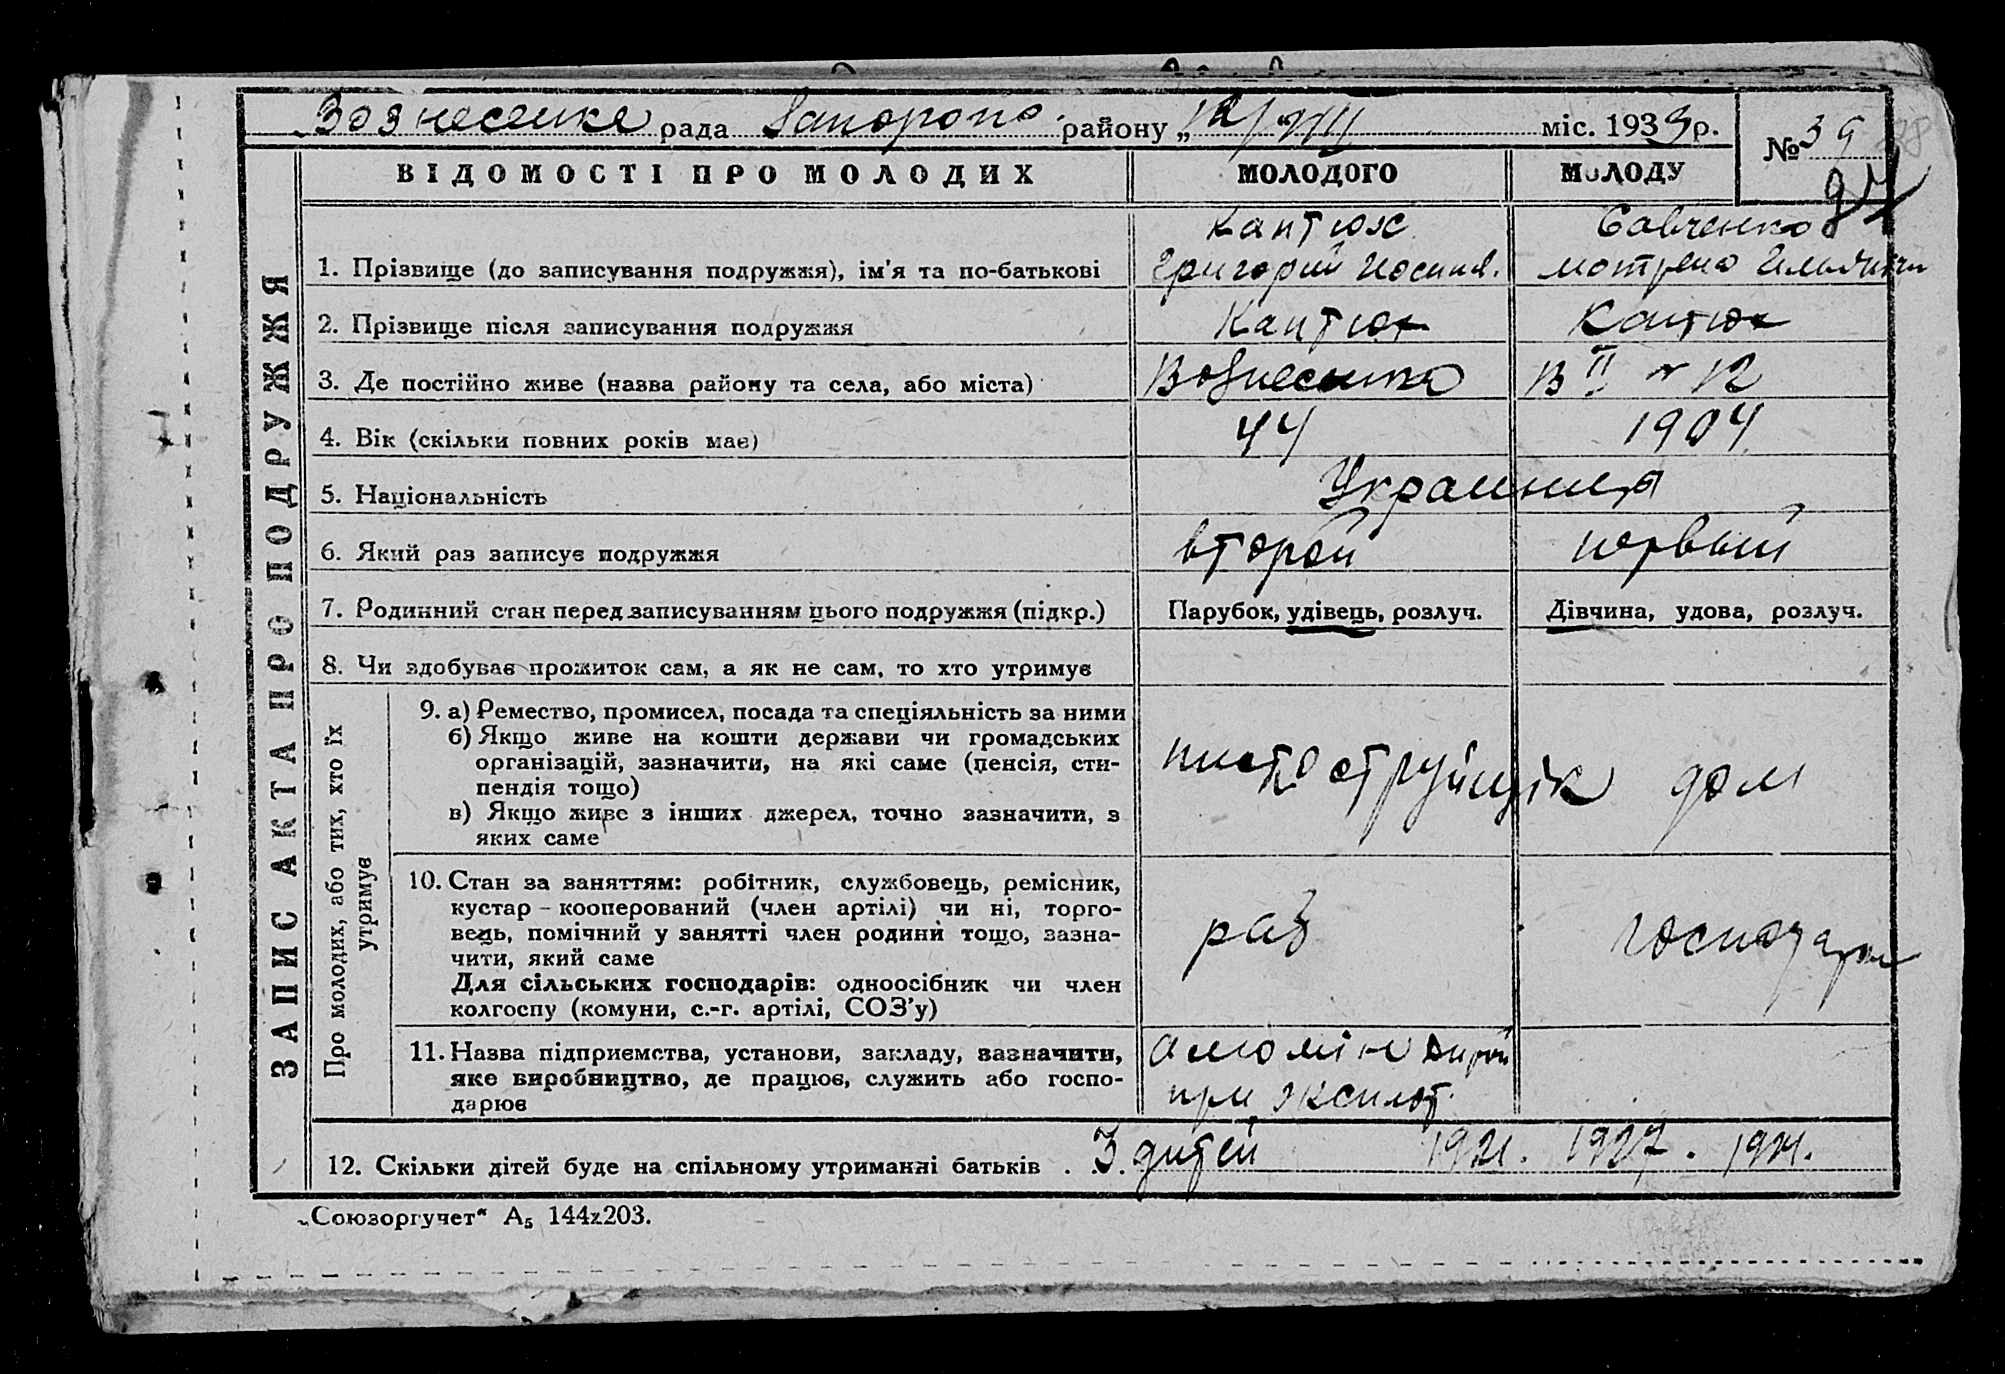 Вознесенке рада Запорожс. району „12/VIII міс. 1933р.
№ 39
38
97
ЗАПИС АКТА ПРО ПОДРУЖЖЯ
ВІДОМОСТІ ПРО МОЛОДИХ МОЛОДОГО МОЛОДУ
Кантюх Савченко
1. Прізвище (до записування подружжя), ім'я та по-батькові Григорий Иосипов. Мотрена
2. Прізвище після записування подружжя Кантюх Кантюх
3. Де постійно живе (назва району та села, або міста) Вознесенка
4. Вік (скільки повних років має) 44 1904
5. Національність Украинця
6. Який раз записує подружжя второй первый
7. Родинний стан перед записуванням цього подружжя (підкр.) Парубок, удівець, розлуч. Дівчина, удова, розлуч.
8. Чи здобуває прожиток сам, а як не сам, то хто утримує
Про молодих, або тих, хто їх утримує
9. а) Ремество, промисел, посада та спеціяльність за ними
б) Якщо живе на кошти держави чи громадських
організацій, зазначити, на які саме (пенсія, сти-
пендія тощо)
в) Якщо живе з інших джерел, точно зазначити, з
яких саме
пескоструйщік дом
10. Стан за заняттям: робітник, службовець, ремісник,
кустар - кооперований (член артілі) чи ні, торго-
вець, помічний у занятті член родини тощо, зазна-
чити, який саме
Для сільських господарів: одноосібник чи член
колгоспу (комуни, с.-г. артілі, СОЗ'у)
раб господар
11. Назва підприємства, установи, закладу, зазначити,
яке виробництво, де працює, служить або госпо-
дарює
алюмін
при
12. Скільки дітей буде на спільному утриманні батьків . 3. дитей 1921. 1927.
„Союзоргучет“ А₅ 144z203.